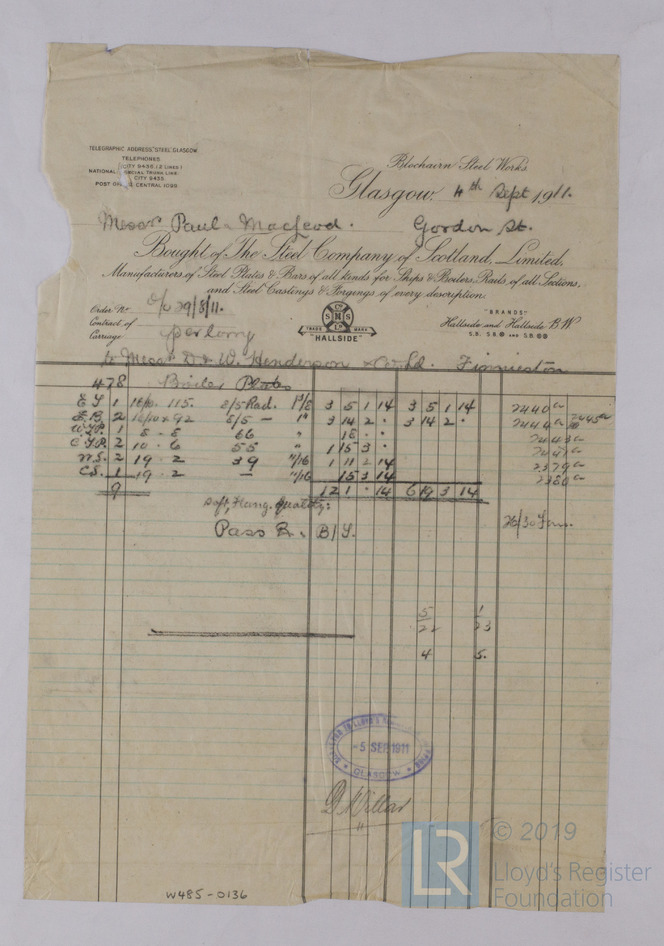 TELEGRAPHIC ADDRESS, "STEEL", GLASGOW
TELEPHONES
CITY 9436 (2 LINES)
NATIONAL TRUNK LINE.
CITY 9435
POST CENTRAL 1099
Blochairn Steel Works
Glasgow, 4th Sept 1911.
Messrs Paul & Macleod. Gordon St.
Bought of The Steel Company of Scotland, Limited,
Manufacturers of Steel Plates & Bars of all kinds for Ships & Boilers, Rails, of all Sections,
and Steel Castings & Forgings of every description.
Order No. 29/8/11.
Contract of
Carriage
TRADE MARK
"HALLSIDE"
"BRANDS"
Hallside and Hallside B.W
To Messrs D & W. Henderson & Co Ld. Finnieston
478 Boiler Plates
1 16/10. 115. 2/5 Rad. 3 5 1 14 3 5 1 14 7440
2 16/10 x 92 3 14 2 . 3 14 2 . 7444 7445
1 5 . 8 66 " 15
2 10 . 6 55 " 1 15 3 .
N.S. 2 19 . 2 39 11/16 1 11 2 14 2379
C.S. 1 19 . 2 — 11/16 15 3 14 2380
9 12 1 . 14 6 19 3 14
Soft, Flang. Quality:
Pass B/S.
26/30 Tons.
5 1
22 23
4 5.
5 SEP 1911
GLASGOW
D. Millar
W485-0136
LR © 2019
Lloyd's Register
Foundation